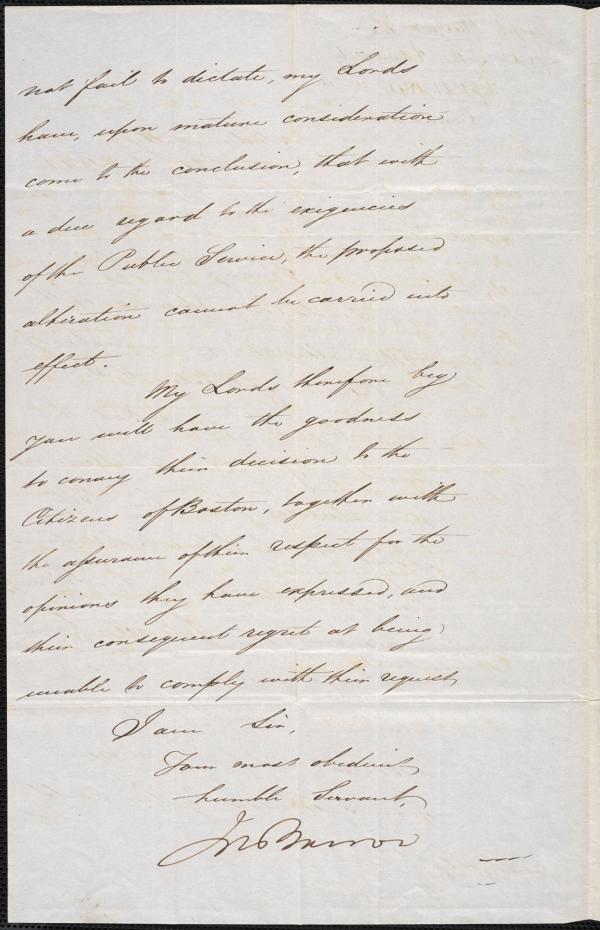 not fail to dictate, my Lords
have, upon mature consideration
come to the conclusion, that with
a due regard to the exigencies
of the Public Service, the proposed
alteration cannot be carried into
effect.
My Lords therefore beg
you will have the goodness
to convey their decision to the
Citizens of Boston, together with
the assurance of their respect for the
opinions they have expressed, and
their consequent regret at being
unable to comply with their request
I am Sir,
Your most obedient
humble Servant,
Jno Barrow